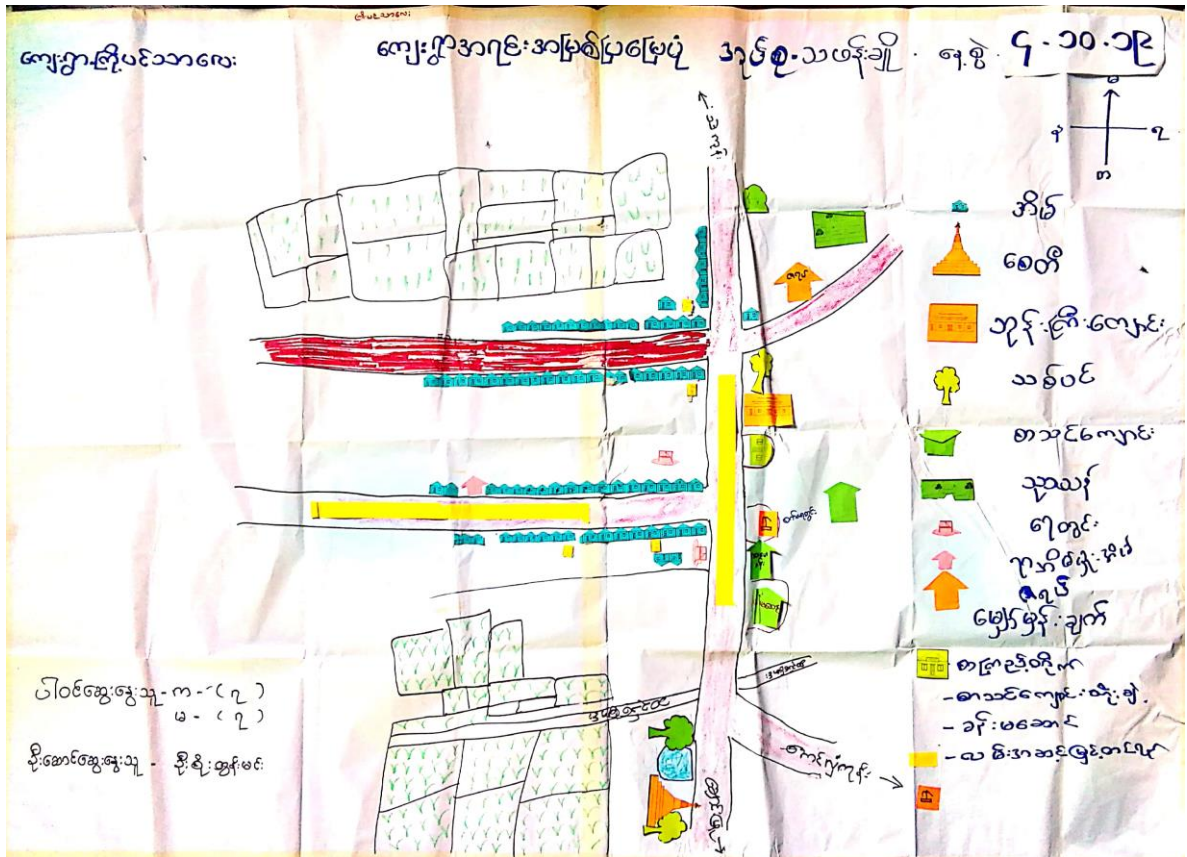 ကျေးရွာ-ကြို့ပင်သာလေး
ကျေးရွာအရင်းအမြစ်ပြမြေပုံ
အုပ်စု-သဖန်းချို
နေ့စွဲ-၄-၁၀-၁၉
အိမ်
စေတီ
ဘုန်းကြီးကျောင်း
သစ်ပင်
စာသင်ကျောင်း
သုသာန်
ရေတွင်း
ဇရပ်
မျှော်မှန်းချက်
စာကြည့်တိုက်
-စာသင်ကျောင်းတိုးချဲ့
-ခန်းမဆောင်
-လမ်းအဆင့်မြှင့်တင်ရန်
ဇရပ်
ပါဝင်ဆွေးနွေးသူ-က-(၇)
မ-(၇)
ဦးဆောင်ဆွေးနွေးသူ-